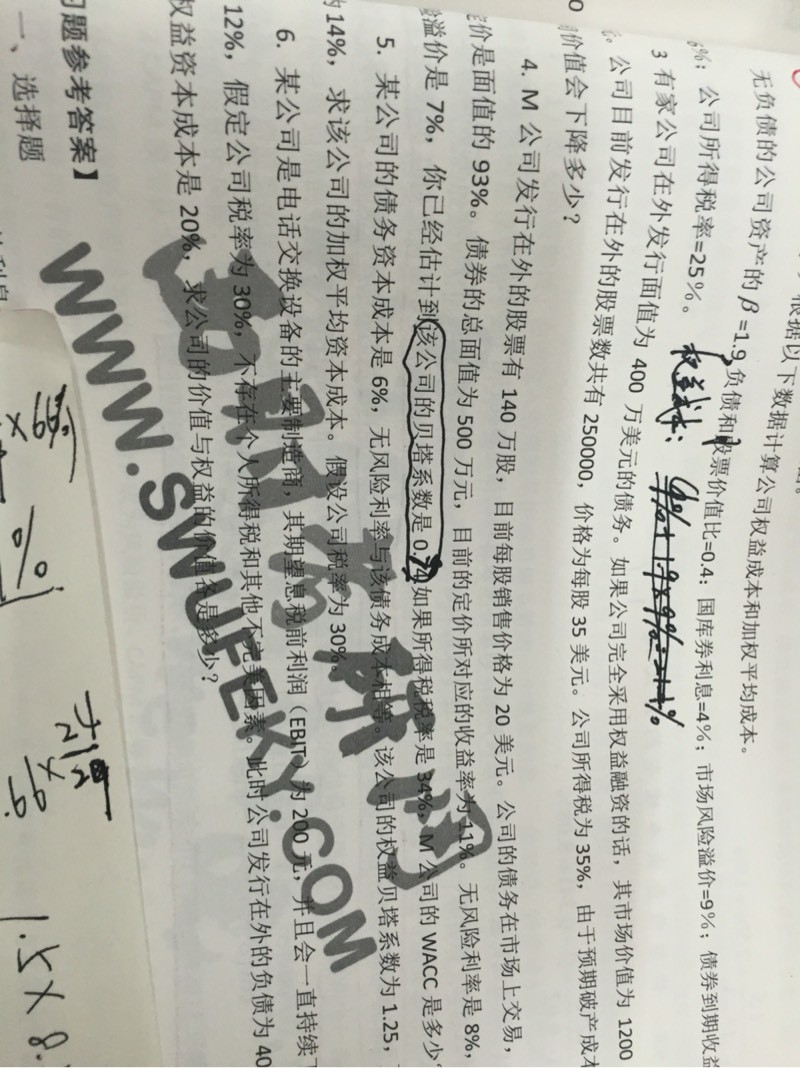 根据以下数据计算公司权益成本和加权平均成本。
无负债的公司资产的 β=1.9, 负债和股票价值比=0.4; 国库券利息=4%; 市场风险溢价=9%; 债券到期收益
6%; 公司所得税率=25%。
权益成本:
3 有家公司在外发行面值为 400 万美元的债务。如果公司完全采用权益融资的话, 其市场价值为 1200
公司目前发行在外的股票数共有 250000, 价格为每股 35 美元。公司所得税为 35%, 由于预期破产成本
价值会下降多少?
4. M 公司发行在外的股票有 140 万股, 目前每股销售价格为 20 美元。公司的债务在市场上交易,
价是面值的 93%。债券的总面值为 500 万元, 目前的定价所对应的收益率为 11%。无风险利率是 8%,
溢价是 7%, 你已经估计到该公司的贝塔系数是 0.74 如果所得税税率是 34%, M 公司的 WACC 是多少
5. 某公司的债务资本成本是 6%, 无风险利率与该债务成本相等。该公司的权益贝塔系数为 1.25,
14%, 求该公司的加权平均资本成本。假设公司税率为 30%。
6. 某公司是电话交换设备的主要制造商, 其期望息税前利润 (EBIT) 为 200 元, 并且会一直持续
12%, 假定公司税率为 30%, 不存在个人所得税和其他不完美因素。此时公司发行在外的负债为 40
权益资本成本是 20%, 求公司的价值与权益的价值各是多少?
习题参考答案】
一、选择题
WWW.SWUFEKY.COM
1.5×8.